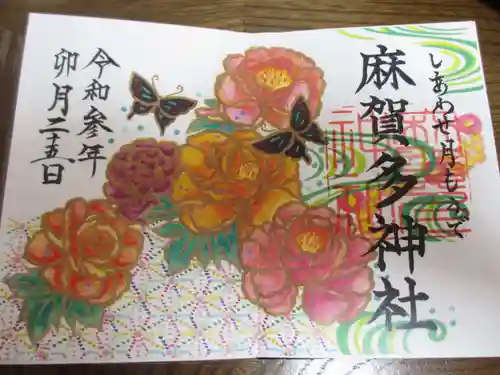 しあわせ月もうで
麻賀多神社
令和参年
卯月二十五日